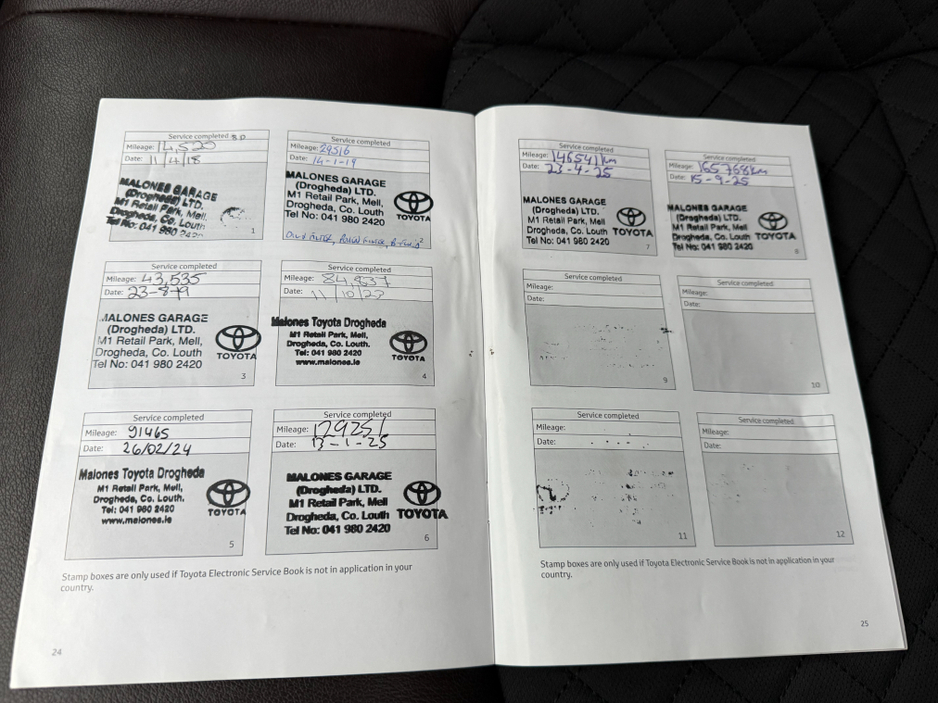 Service completed
Mileage: 14,520
Date: 11/4/18
MALONES GARAGE
(Drogheda) LTD.
M1 Retail Park, Mell,
Drogheda, Co. Louth
Tel No: 041 980
1
Service completed
Mileage: 29516
Date: 14-1-19
MALONES GARAGE
(Drogheda) LTD.
M1 Retail Park, Mell,
Drogheda, Co. Louth
Tel No: 041 980 2420
TOYOTA
Oil & Filter, Pollen Filter,
Service completed
Mileage: 43,535
Date: 23-8-19
MALONES GARAGE
(Drogheda) LTD.
M1 Retail Park, Mell,
Drogheda, Co. Louth
Tel No: 041 980 2420
TOYOTA
3
Service completed
Mileage: 84,837
Date: 11/10/23
Malones Toyota Drogheda
M1 Retail Park, Mell,
Drogheda, Co. Louth.
Tel: 041 980 2420
www.malones.ie
TOYOTA
4
Service completed
Mileage: 91465
Date: 26/02/24
Malones Toyota Drogheda
M1 Retail Park, Mell,
Drogheda, Co. Louth.
Tel: 041 980 2420
www.malones.ie
TOYOTA
5
Service completed
Mileage: 129251
Date: 13-1-25
MALONES GARAGE
(Drogheda) LTD.
M1 Retail Park, Mell
Drogheda, Co. Louth
Tel No: 041 980 2420
TOYOTA
6
Stamp boxes are only used if Toyota Electronic Service Book is not in application in your
country.
24
Service completed
Mileage: 146541km
Date: 23-4-25
MALONES GARAGE
(Drogheda) LTD.
M1 Retail Park, Mell,
Drogheda, Co. Louth
Tel No: 041 980 2420
TOYOTA
7
Service completed
Mileage: 165768km
Date: 15-9-25
MALONES GARAGE
(Drogheda) LTD.
M1 Retail Park, Mell,
Drogheda, Co. Louth
Tel No: 041 980 2420
TOYOTA
8
Service completed
Mileage:
Date:
9
Service completed
Mileage:
Date:
10
Service completed
Mileage:
Date:
11
Service completed
Mileage:
Date:
12
Stamp boxes are only used if Toyota Electronic Service Book is not in application in your
country.
25